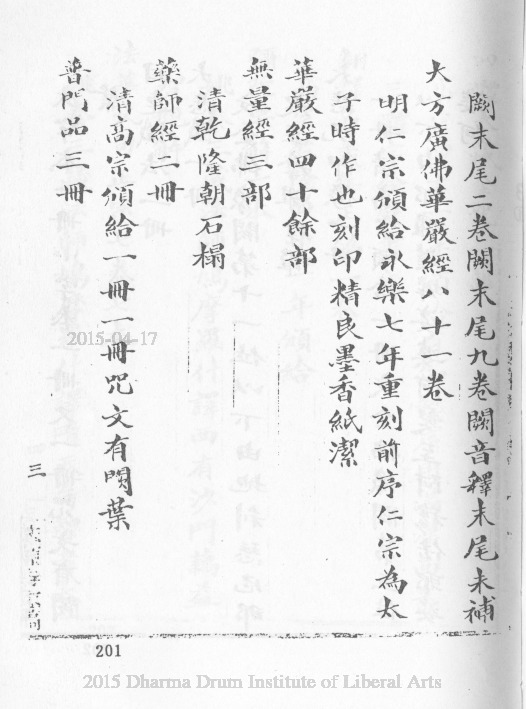 闕末尾二卷闕末尾九卷闕音釋末尾未補
大方廣佛華嚴經八十一卷
明仁宗頒給永樂七年重刻前序仁宗為太
子時作也刻印精良墨香紙潔
華嚴經四十餘部
無量經三部
清乾隆朝石榻
藥師經二冊
清高宗頒給一冊一冊咒文有闕葉
普門品三冊
三
2015-04-17
201
2015 Dharma Drum Institute of Liberal Arts